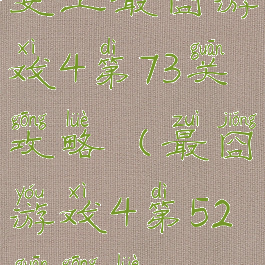 史上最囧游
xì dì guān
戏4第73关
gōng lüè zuì jiǒng
攻略(最囧
yóu xì dì
游戏4第52
guān gōng lüè